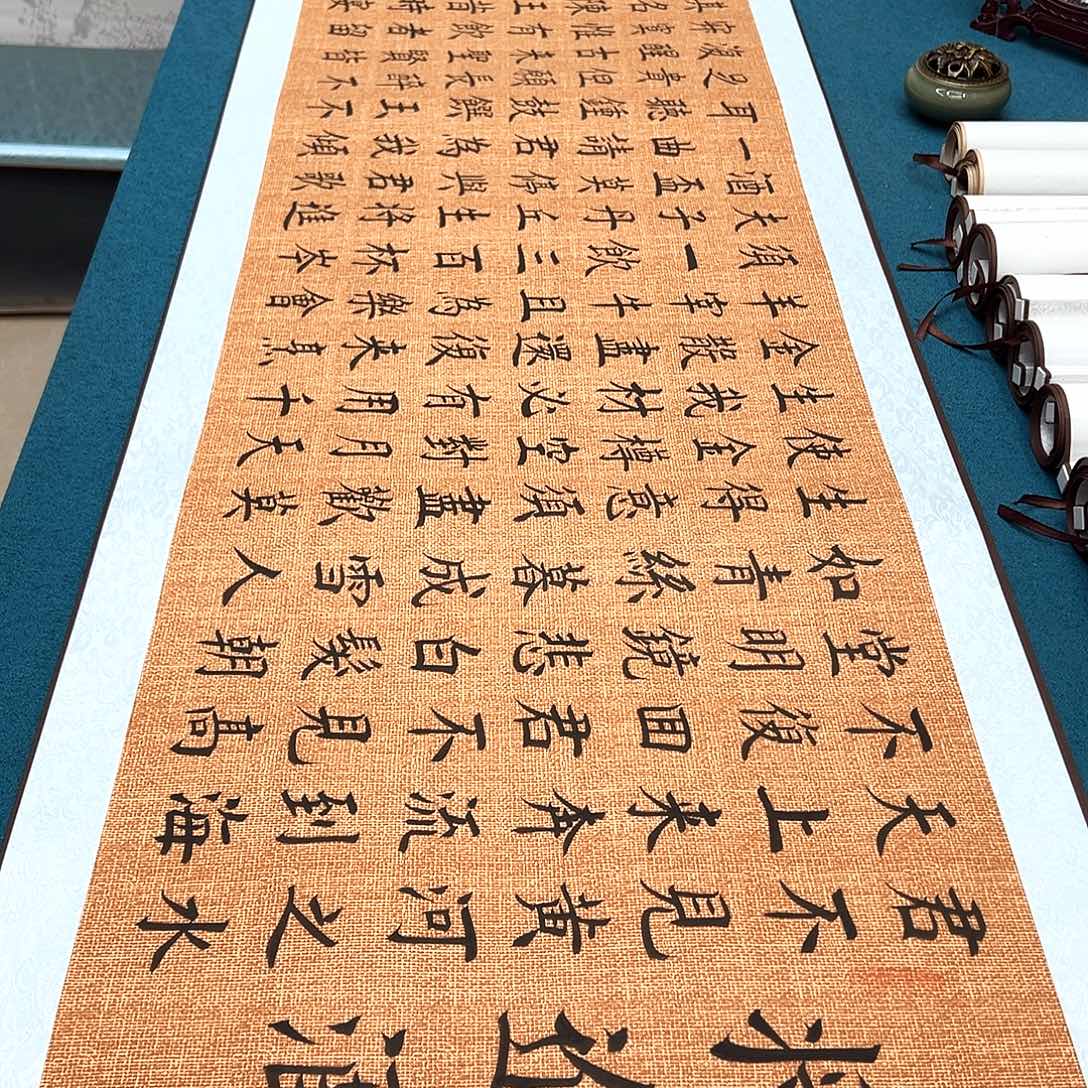 将進酒
君不見黃河之水
天上来奔流到海
不復回君不見高
堂明鏡悲白髮朝
如青絲暮成雪人
生得意須盡歡莫
使金樽空對月天
生我材必有用千
金散盡還復来烹
羊宰牛且為樂會
須一飲三百杯岑
夫子丹丘生將進
酒盃莫停與君歌
一曲請君為我傾
耳聽鐘鼓饌玉不
足貴但願長醉不
復醒古来聖賢皆
寂寞惟有飲者留
其名陳王昔時宴